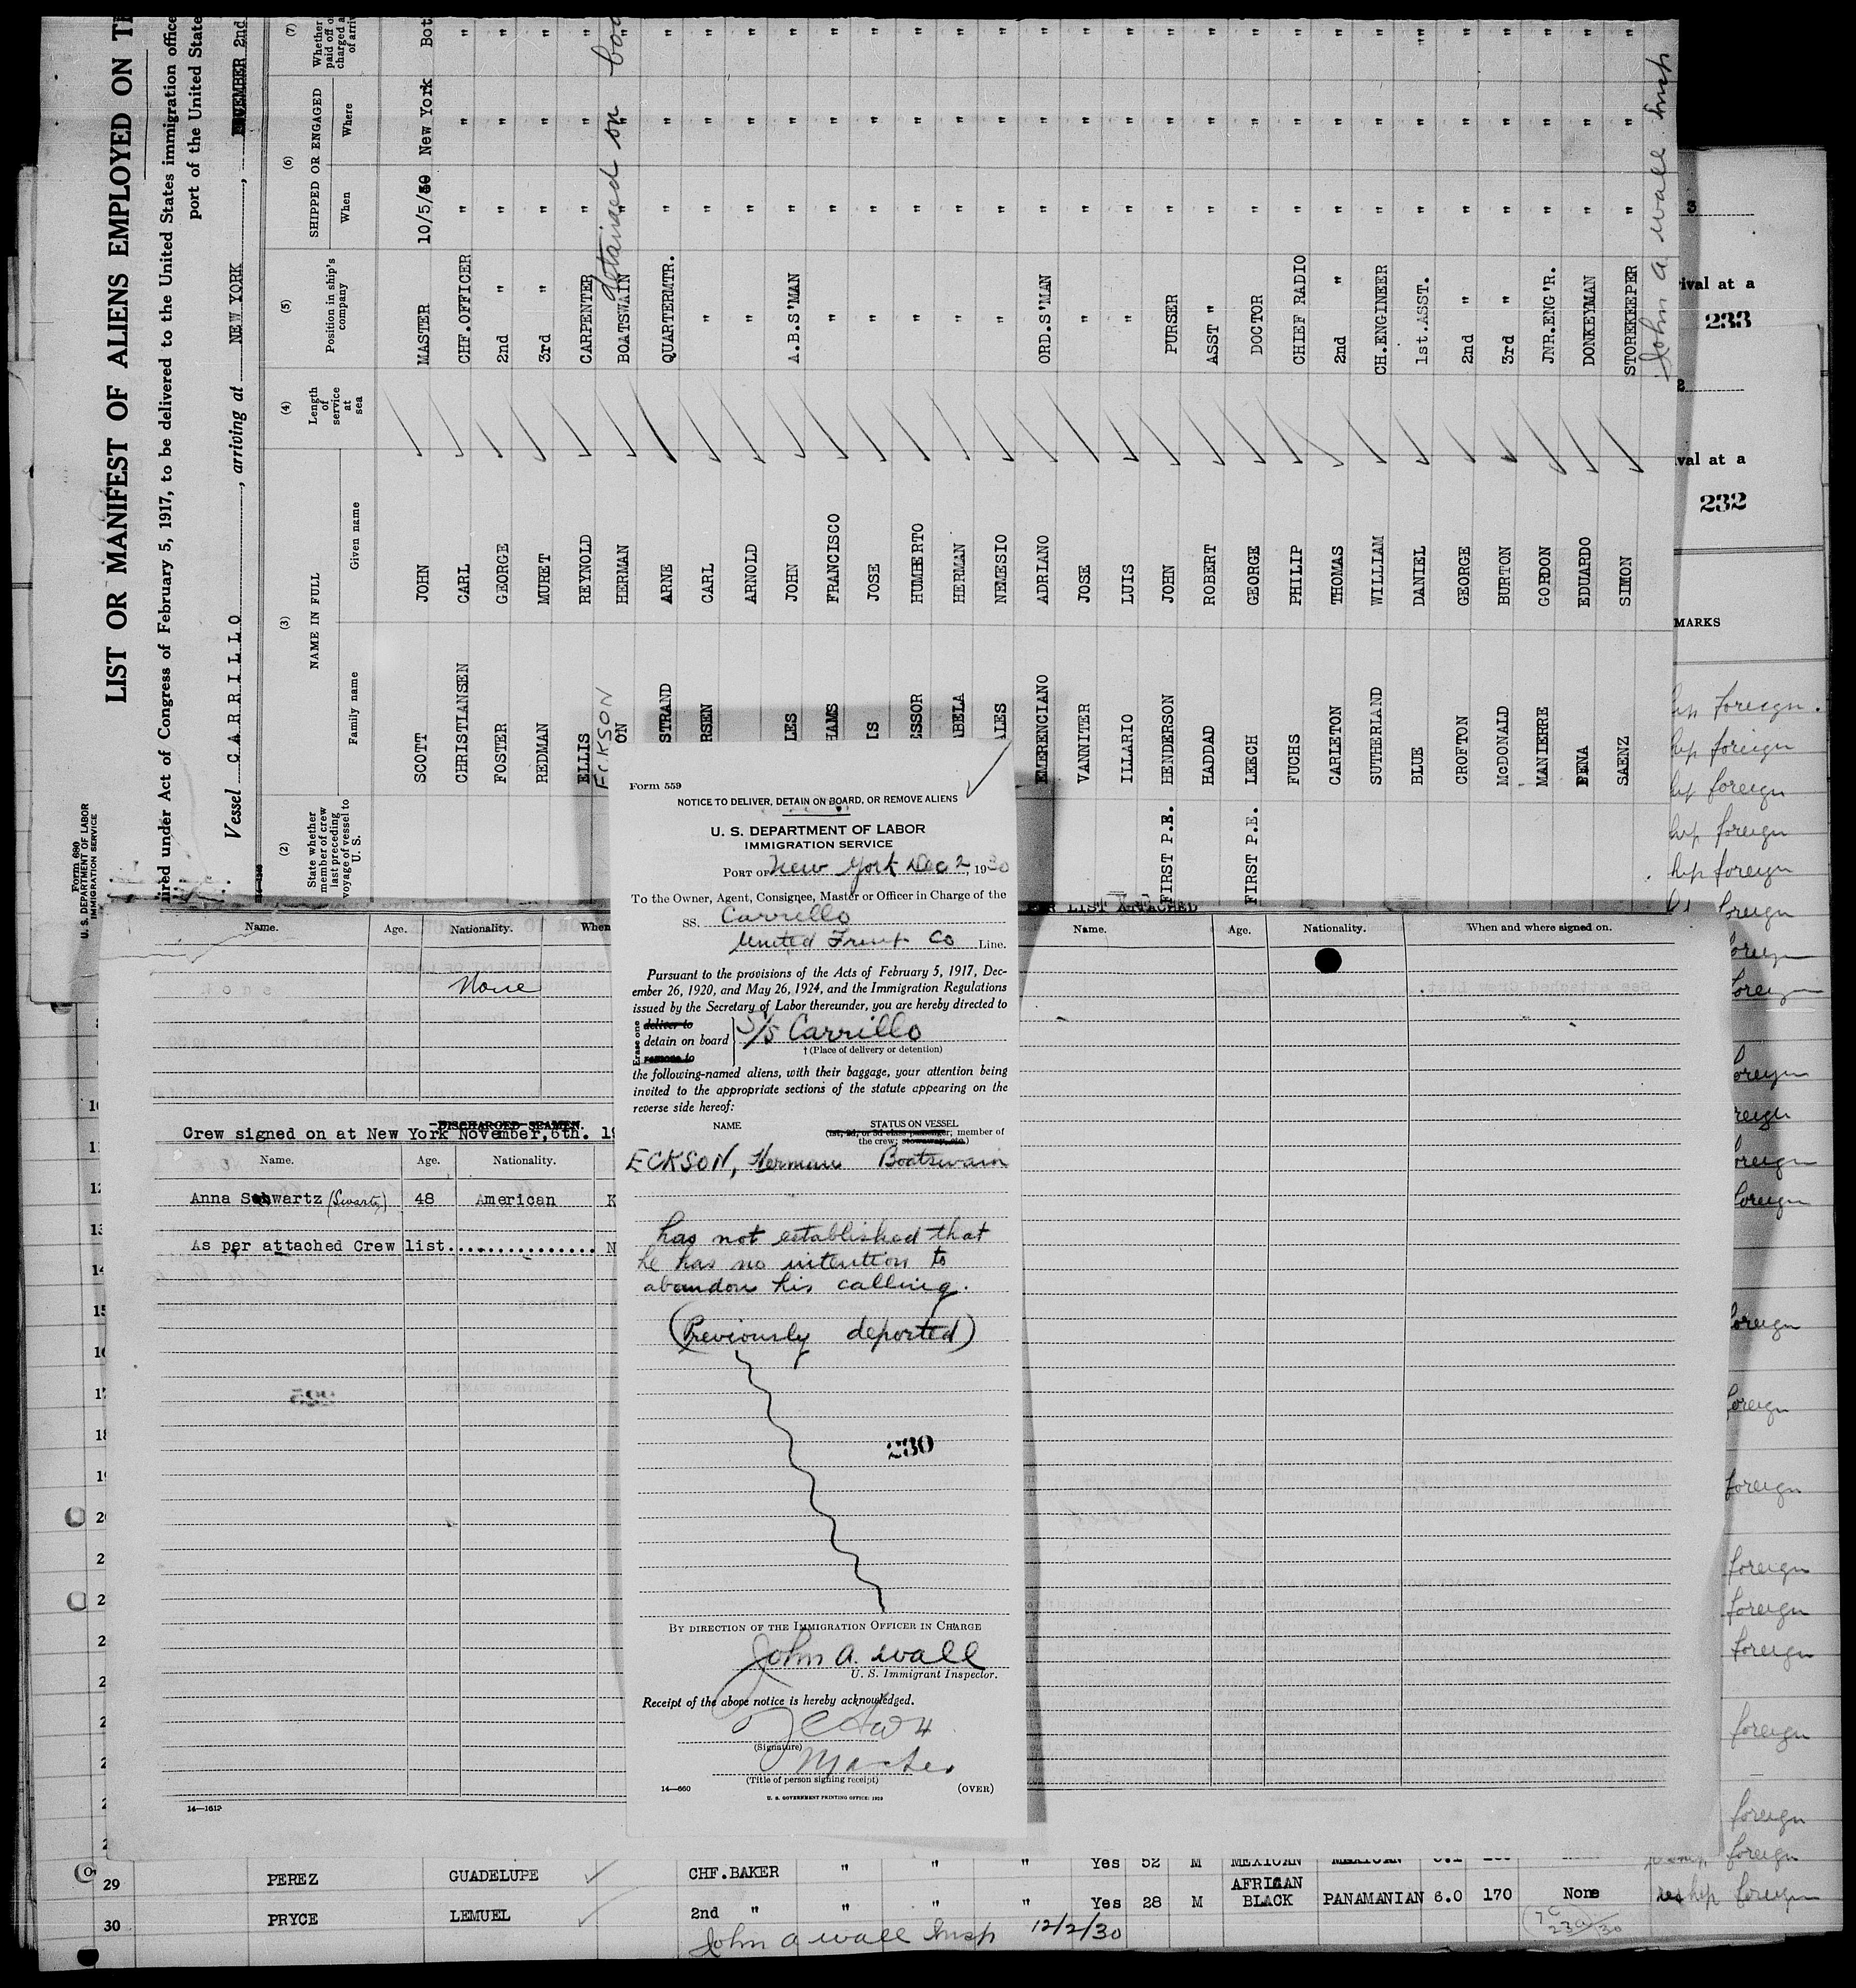 Form 680
U. S. DEPARTMENT OF LABOR
IMMIGRATION SERVICE
LIST OR MANIFEST OF ALIENS EMPLOYED ON
under Act of Congress of February 5, 1917, to be delivered to the United States immigration
port of the United
Vessel CARRILLO, arriving at NEW YORK, 2nd
(2) (3) (4) (5) (6) (7)
State whether member of crew last preceding voyage of vessel to U. S.
NAME IN FULL
Family name Given name
Length of service at sea
Position in ship's company
SHIPPED OR ENGAGED
When Where
Whether paid off or
SCOTT JOHN MASTER 10/5/30 New York
CHRISTIANSEN CARL CHF.OFFICER " "
FOSTER GEORGE 2nd " " "
REDMAN MURET 3rd " " "
ELLIS REYNOLD CARPENTER " "
ECKSON HERMAN BOATSWAIN " " detained on
ARNE QUARTERMTR. " "
CARL " " "
ARNOLD " " "
JOHN A.B.S'MAN " "
FRANCISCO " " "
JOSE " " "
HUMBERTO " " "
HERMAN " " "
NEMESIO " " "
EMERENCIANO ADRIANO ORD.S'MAN " "
VANNITER JOSE " " "
ILLARIO LUIS " " "
FIRST P.E. HENDERSON JOHN PURSER " "
HADDAD ROBERT ASST " " "
FIRST P.E. LEECH GEORGE DOCTOR " "
FUCHS PHILIP CHIEF RADIO " "
CARLETON THOMAS 2nd " " "
SUTHERLAND WILLIAM CH.ENGINEER " "
BLUE DANIEL 1st.ASST. " "
CROFTON GEORGE 2nd " " "
McDONALD BURTON 3rd " " "
MANIERRE GORDON JNR.ENG'R. " "
PENA EDUARDO DONKEYMAN " "
SAENZ SIMON STOREKEEPER " "
John A Wall Insp
at a
233
at a
232
foreign.
foreign
foreign
foreign
foreign
foreign
Name. Age. Nationality.
None
DISCHARGED SEAMEN.
Crew signed on at New York November,6th.
Name. Age. Nationality.
Anna Schwartz (Swartz) 48 American
As per attached Crew list...............
14—1612
Form 559
NOTICE TO DELIVER, DETAIN ON BOARD, OR REMOVE ALIENS
U. S. DEPARTMENT OF LABOR
IMMIGRATION SERVICE
PORT OF New York Dec 2, 1930
To the Owner, Agent, Consignee, Master or Officer in Charge of the
SS. Carrillo
United Fruit Co Line.
Pursuant to the provisions of the Acts of February 5, 1917, Dec-
ember 26, 1920, and May 26, 1924, and the Immigration Regulations
issued by the Secretary of Labor thereunder, you are hereby directed to
Erase one
deliver to
detain on board
remove to
S/S Carrillo
† (Place of delivery or detention)
the following-named aliens, with their baggage, your attention being
invited to the appropriate sections of the statute appearing on the
reverse side hereof:
NAME STATUS ON VESSEL
(1st, 2d, or 3d class passenger; member of
the crew; stowaway, etc.)
ECKSON, Herman Boatswain
has not established that
he has no intention to
abandon his calling.
(Previously deported)
230
BY DIRECTION OF THE IMMIGRATION OFFICER IN CHARGE
John A. Wall
U. S. Immigrant Inspector.
Receipt of the above notice is hereby acknowledged.
(Signature)
Master
(Title of person signing receipt)
14—660 (OVER)
U. S. GOVERNMENT PRINTING OFFICE: 1928
LIST ATTACHED
Name. Age. Nationality. When and where signed on.
29 PEREZ GUADELUPE CHF.BAKER " " " Yes 52 M MEXICAN MEXICAN
30 PRYCE LEMUEL 2nd " " " " Yes 28 M AFRICAN BLACK PANAMANIAN 6.0 170 None foreign
John A Wall Insp 12/2/30